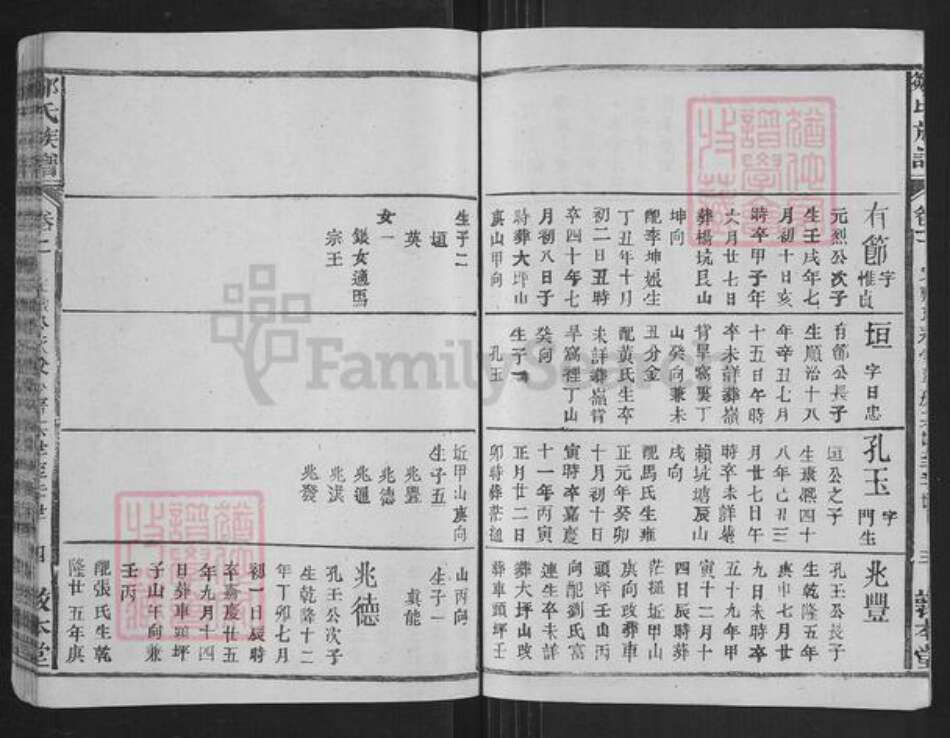 有節 字惟貞
元烈公次子
生壬戌年七
月初十日亥
時卒甲子年
六月廿七日
葬楊坑艮山
坤向
配李坤娘生
丁丑年十月
初二日丑時
卒四十年七
月初八日子
時葬大坪山
庚山甲向
生子二
垣
英
女一
銀女適馬
宗王
垣 字日忠
有節公長子
生順治十八
年辛丑七月
十五日午時
卒未詳葬嶺
背旱窩裏丁
山癸向兼未
丑分金
配黃氏生卒
未詳葬嶺背
旱窩裡丁山
癸向
生子一
孔玉
孔玉 字門生
垣公之子
生康熙四十
八年己丑三
月廿七日午
時卒未詳葬
賴坑塘辰山
戌向
配馬氏生雍
正元年癸卯
十月初十日
寅時卒嘉慶
十一年丙寅
正月廿二日
卯時葬茫通
坵甲山庚向
生子五
兆豐
兆德
兆通
兆漢
兆發
兆豐
孔玉公長子
生乾隆五年
庚申七月廿
九日未時卒
五十九年甲
寅十二月十
四日辰時葬
茫通坵甲山
庚向改葬車
頭坪壬山丙
向配劉氏富
連生卒未詳
葬大坪山改
葬車頭坪壬
山丙向
生子一
真能
兆德
孔玉公次子
生乾隆十二
年丁卯七月
初一日辰時
卒嘉慶廿五
年九月十四
日葬車頭坪
子山午向兼
壬丙
配張氏生乾
隆廿五年庚
鄒氏族譜
卷一
四
敦本堂
FamilySearch